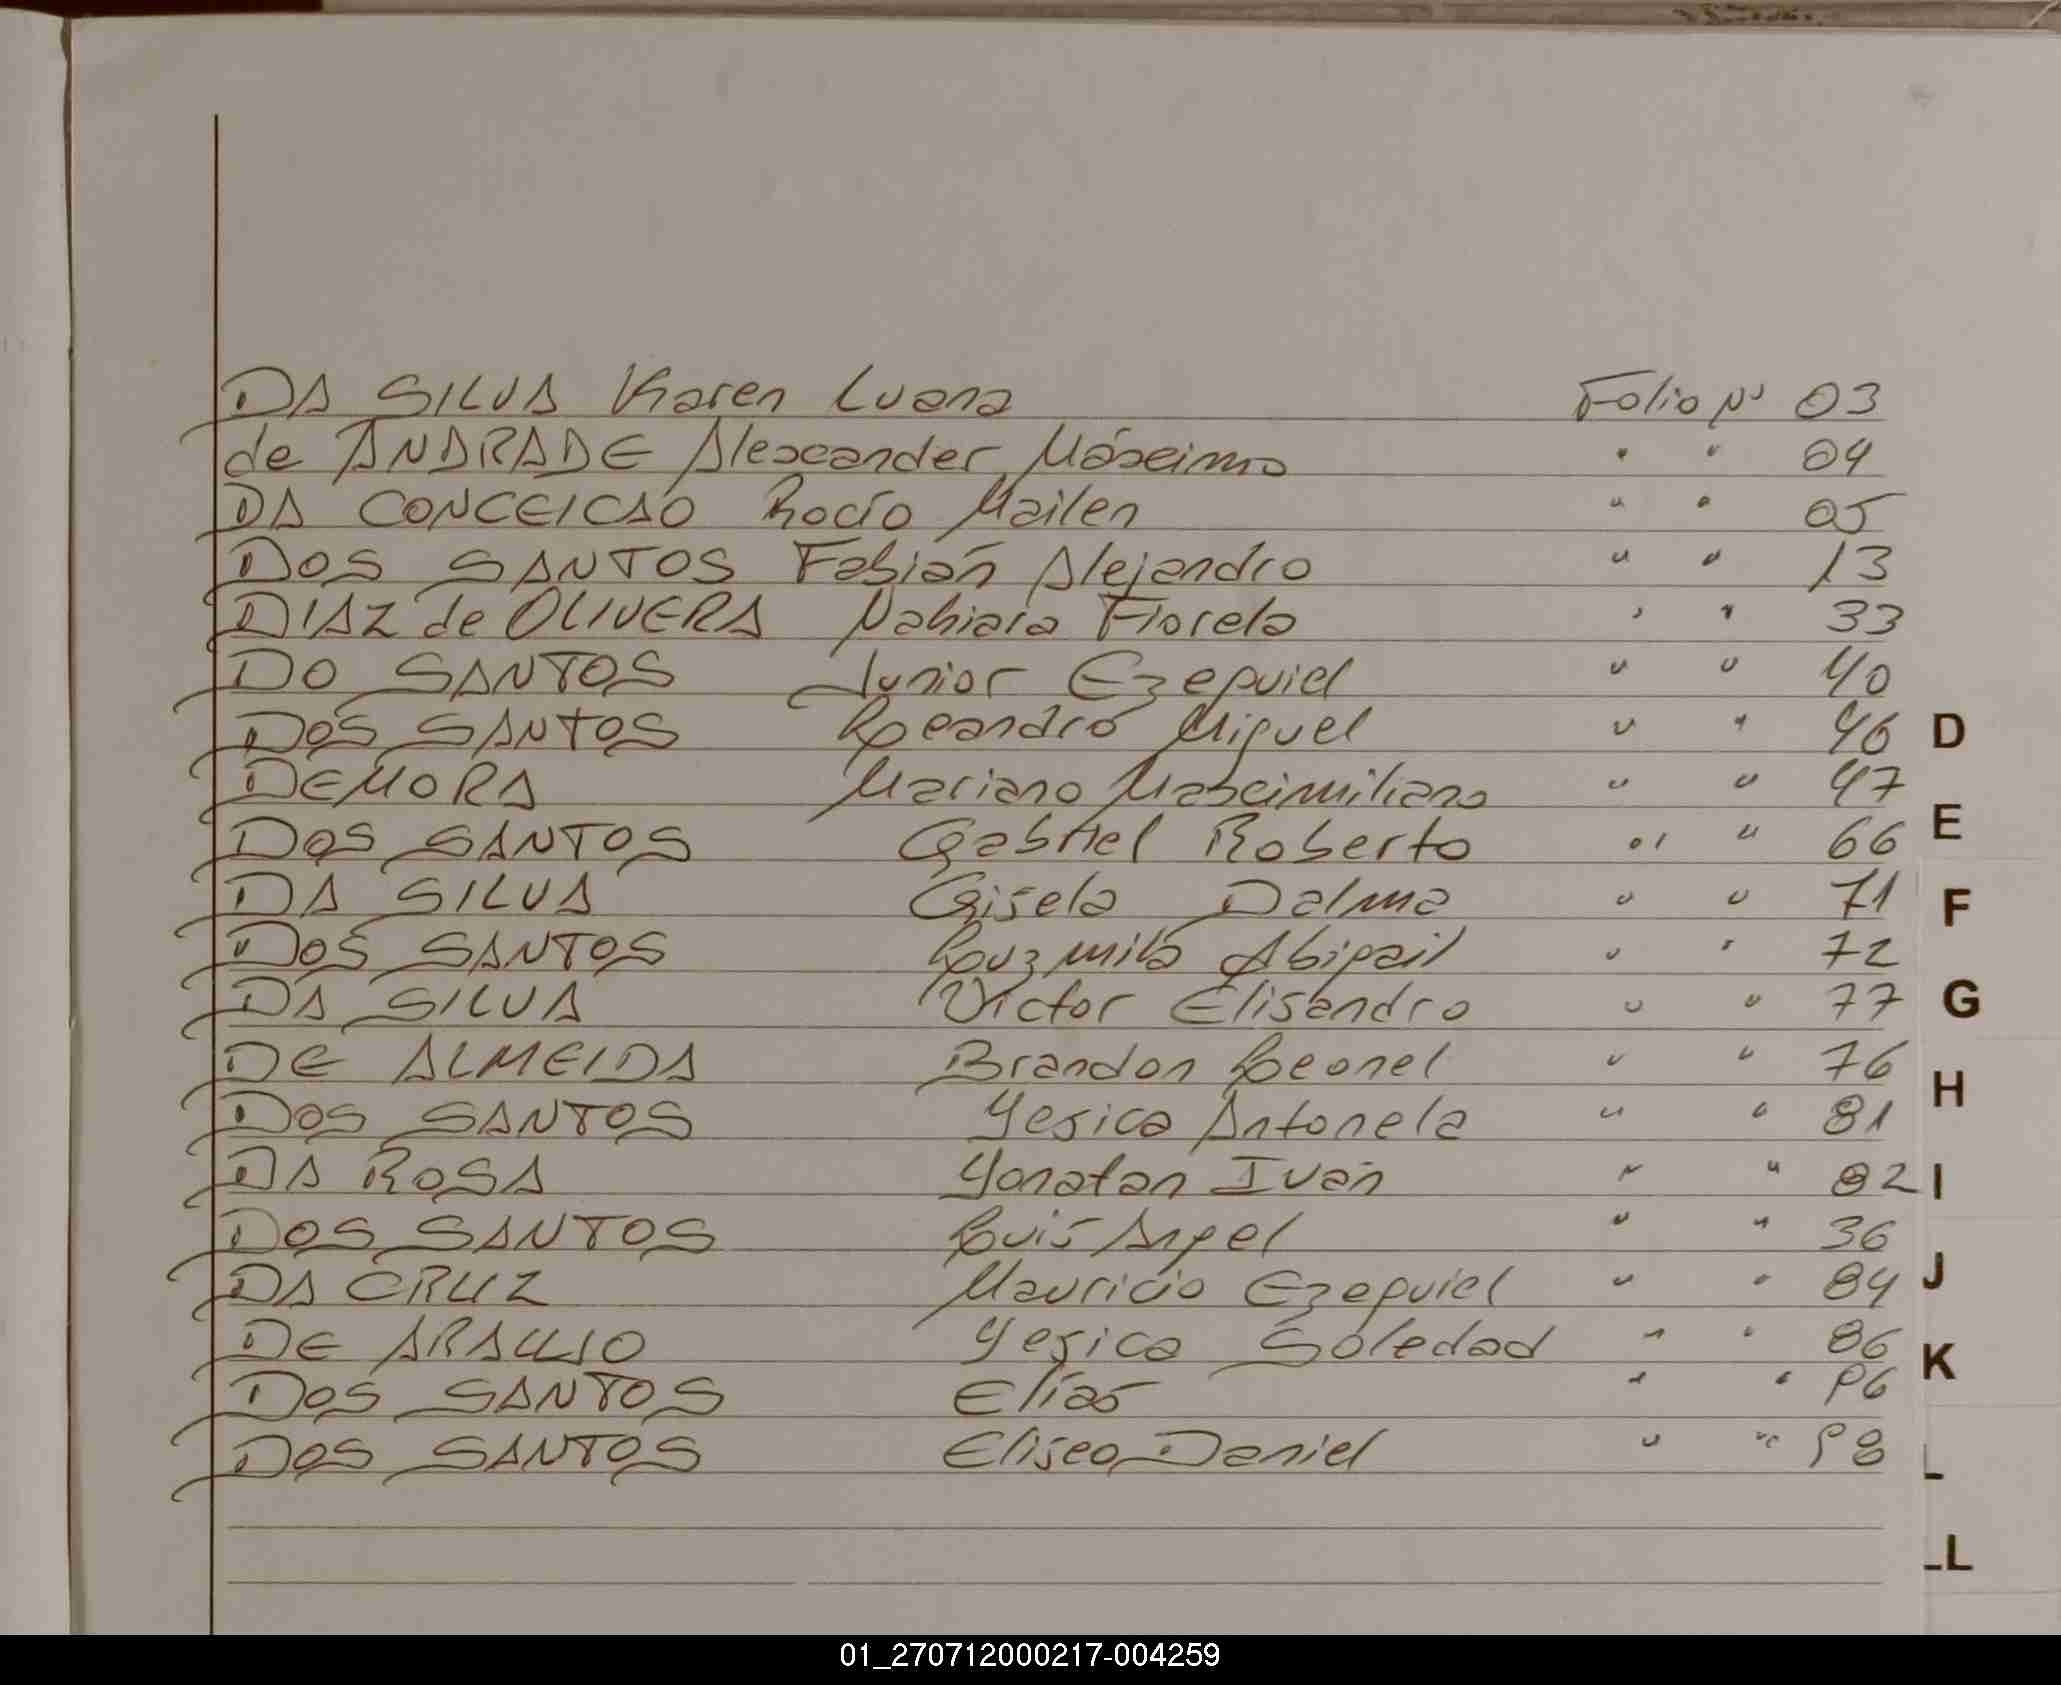 DA SILVA Karen Luana Folio Nº 03
de ANDRADE Alexander Máximo " " 04
DA CONCEICAO Rocío Mailen " " 05
DOS SANTOS Fabián Alejandro " " 13
DIAZ de OLIVERA Nahiara Fiorela " " 33
DO SANTOS Junior Ezequiel " " 40
DOS SANTOS Leandro Miguel " " 46
DEMORA Mariano Maximiliano " " 47
DOS SANTOS Gabriel Roberto " " 66
DA SILVA Gisela Dalma " " 71
DOS SANTOS Luzmila Abigail " " 72
DA SILVA Victor Elisandro " " 77
DE ALMEIDA Brandon Leonel " " 76
DOS SANTOS Yesica Antonela " " 81
DA ROSA Yonatan Iván " " 82
DOS SANTOS Luis Angel " " 36
DA CRUZ Mauricio Ezequiel " " 84
DE ARAUJO Yesica Soledad " " 86
DOS SANTOS Elías " " 96
DOS SANTOS Eliseo Daniel " " 98
D
E
F
G
H
I
J
K
L
LL
01_270712000217-004259